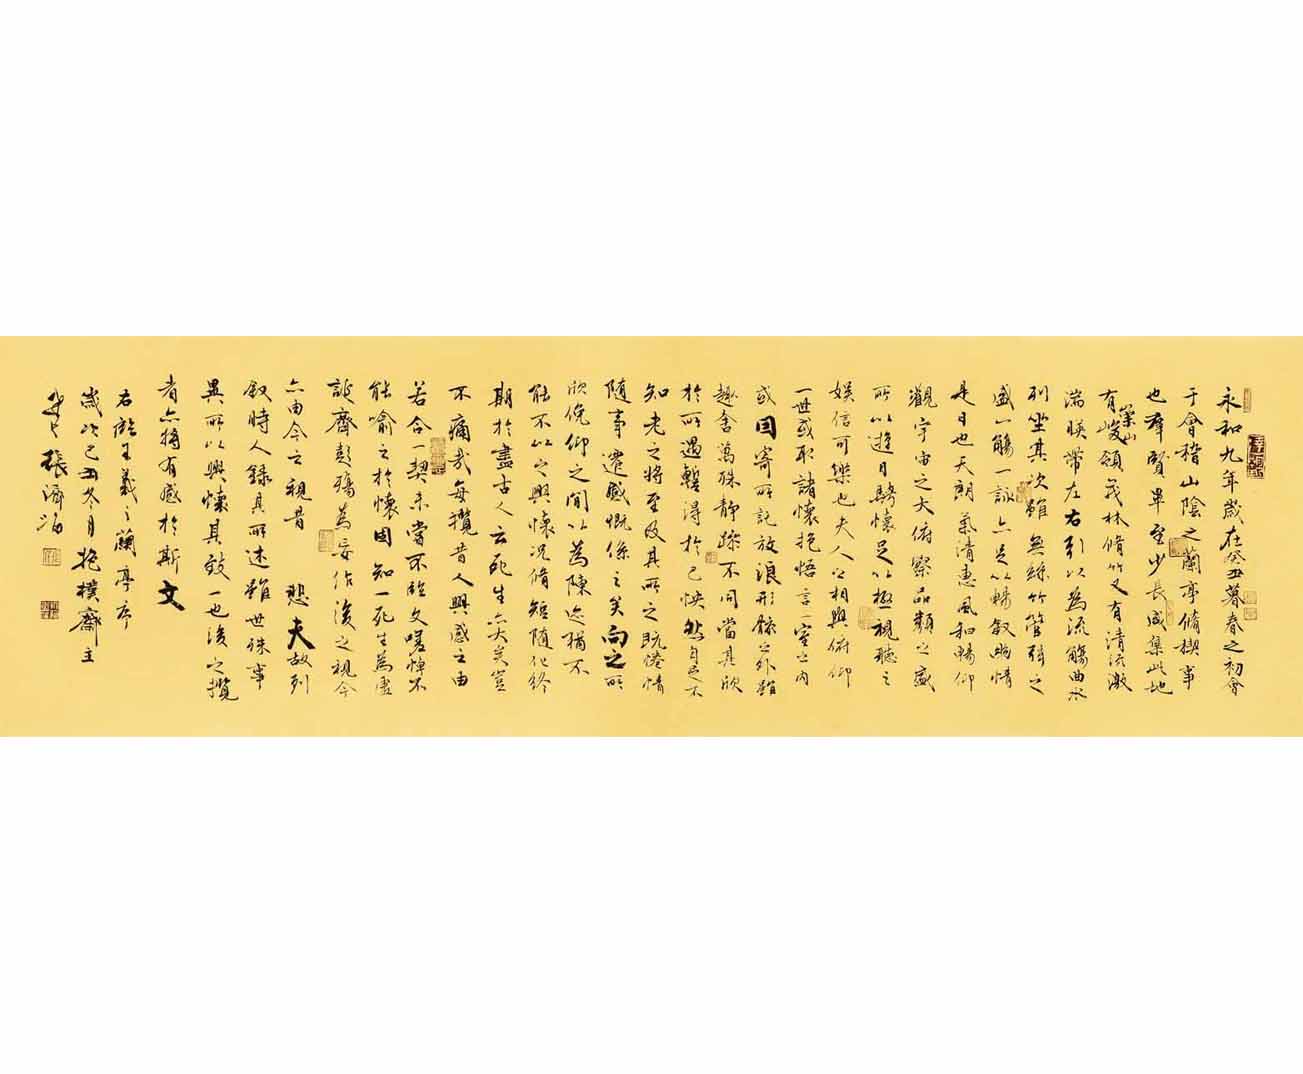 永和九年歲在癸丑暮春之初會
于會稽山陰之蘭亭脩禊事
也羣賢畢至少長咸集此地
有崇山峻領茂林脩竹又有清流激
湍暎帶左右引以為流觴曲水
列坐其次雖無絲竹管弦之
盛一觴一詠亦足以暢敘幽情
是日也天朗氣清惠風和暢仰
觀宇宙之大俯察品類之盛
所以遊目騁懷足以極視聽之
娛信可樂也夫人之相與俯仰
一世或取諸懷抱悟言一室之內
或因寄所託放浪形骸之外雖
趣舍萬殊靜躁不同當其欣
於所遇暫得於己怏然自足不
知老之將至及其所之既惓情
隨事遷感慨係之矣向之所
欣俛仰之間以為陳迹猶不
能不以之興懷況脩短隨化終
期於盡古人云死生亦大矣豈
不痛哉每攬昔人興感之由
若合一契未嘗不臨文嗟悼不
能喻之於懷固知一死生為虛
誕齊彭殤為妄作後之視今
亦由今之視昔 悲夫故列
敘時人錄其所述雖世殊事
異所以興懷其致一也後之攬
者亦將有感於斯文
右臨王羲之蘭亭序
歲次己丑冬月抱樸齋主
張濟海